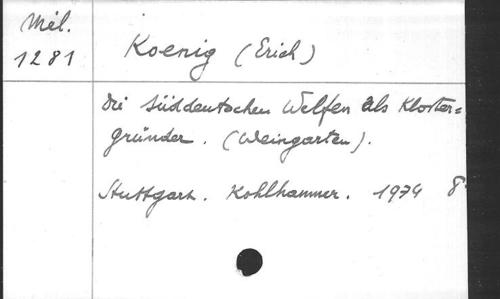 Mél.
1281
Koenig (Erich)
Die süddeutschen Welfen als Kloster=
gründer. (Weingarten).
Stuttgart. Kohlhammer. 1974 8°